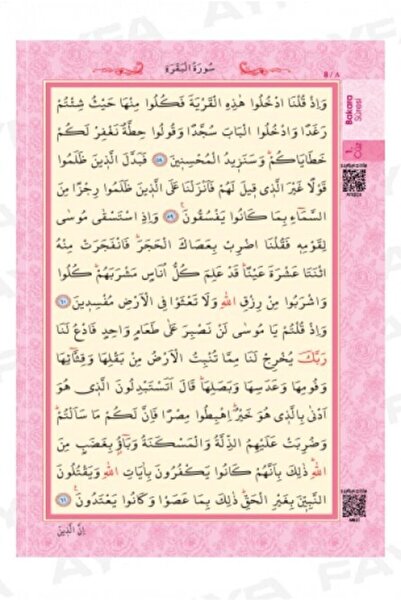 سُورَةُ الْبَقَرَةِ
8 / ٨
وَاِذْ قُلْنَا ادْخُلُوا هٰذِهِ الْقَرْيَةَ فَكُلُوا مِنْهَا حَيْثُ شِئْتُمْ
رَغَدًا وَادْخُلُوا الْبَابَ سُجَّدًا وَقُولُوا حِطَّةٌ نَغْفِرْ لَكُمْ
خَطَايَاكُمْ وَسَنَزِيدُ الْمُحْسِنِينَ ﴿٥٨﴾ فَبَدَّلَ الَّذِينَ ظَلَمُوا
قَوْلًا غَيْرَ الَّذِي قِيلَ لَهُمْ فَاَنْزَلْنَا عَلَى الَّذِينَ ظَلَمُوا رِجْزًا مِنَ
السَّمَاءِ بِمَا كَانُوا يَفْسُقُونَ ﴿٥٩﴾ وَاِذِ اسْتَسْقٰى مُوسٰى
لِقَوْمِهِ فَقُلْنَا اضْرِبْ بِعَصَاكَ الْحَجَرَ فَانْفَجَرَتْ مِنْهُ
اثْنَتَا عَشْرَةَ عَيْنًا قَدْ عَلِمَ كُلُّ اُنَاسٍ مَشْرَبَهُمْ كُلُوا
وَاشْرَبُوا مِنْ رِزْقِ اللّٰهِ وَلَا تَعْثَوْا فِي الْاَرْضِ مُفْسِدِينَ ﴿٦٠﴾
وَاِذْ قُلْتُمْ يَا مُوسٰى لَنْ نَصْبِرَ عَلٰى طَعَامٍ وَاحِدٍ فَادْعُ لَنَا
رَبَّكَ يُخْرِجْ لَنَا مِمَّا تُنْبِتُ الْاَرْضُ مِنْ بَقْلِهَا وَقِثَّائِهَا
وَفُومِهَا وَعَدَسِهَا وَبَصَلِهَا قَالَ اَتَسْتَبْدِلُونَ الَّذِي هُوَ
اَدْنٰى بِالَّذِي هُوَ خَيْرٌ اِهْبِطُوا مِصْرًا فَاِنَّ لَكُمْ مَا سَاَلْتُمْ
وَضُرِبَتْ عَلَيْهِمُ الذِّلَّةُ وَالْمَسْكَنَةُ وَبَاؤُ بِغَضَبٍ مِنَ
اللّٰهِ ذٰلِكَ بِاَنَّهُمْ كَانُوا يَكْفُرُونَ بِاٰيَاتِ اللّٰهِ وَيَقْتُلُونَ
النَّبِيِّنَ بِغَيْرِ الْحَقِّ ذٰلِكَ بِمَا عَصَوْا وَكَانُوا يَعْتَدُونَ ﴿٦١﴾
اِنَّ الَّذِينَ
Bakara
Sûresi
1.
Cüz